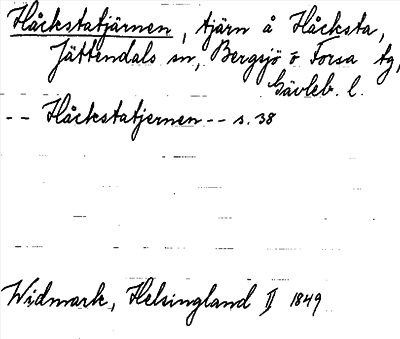 Håckstatjärnen, tjärn å Håcksta,
Jättendals sn, Bergsjö o Forsa tg,
Gävleb. l.
-- Håckstatjernen -- s. 38
Widmark, Helsingland II 1849